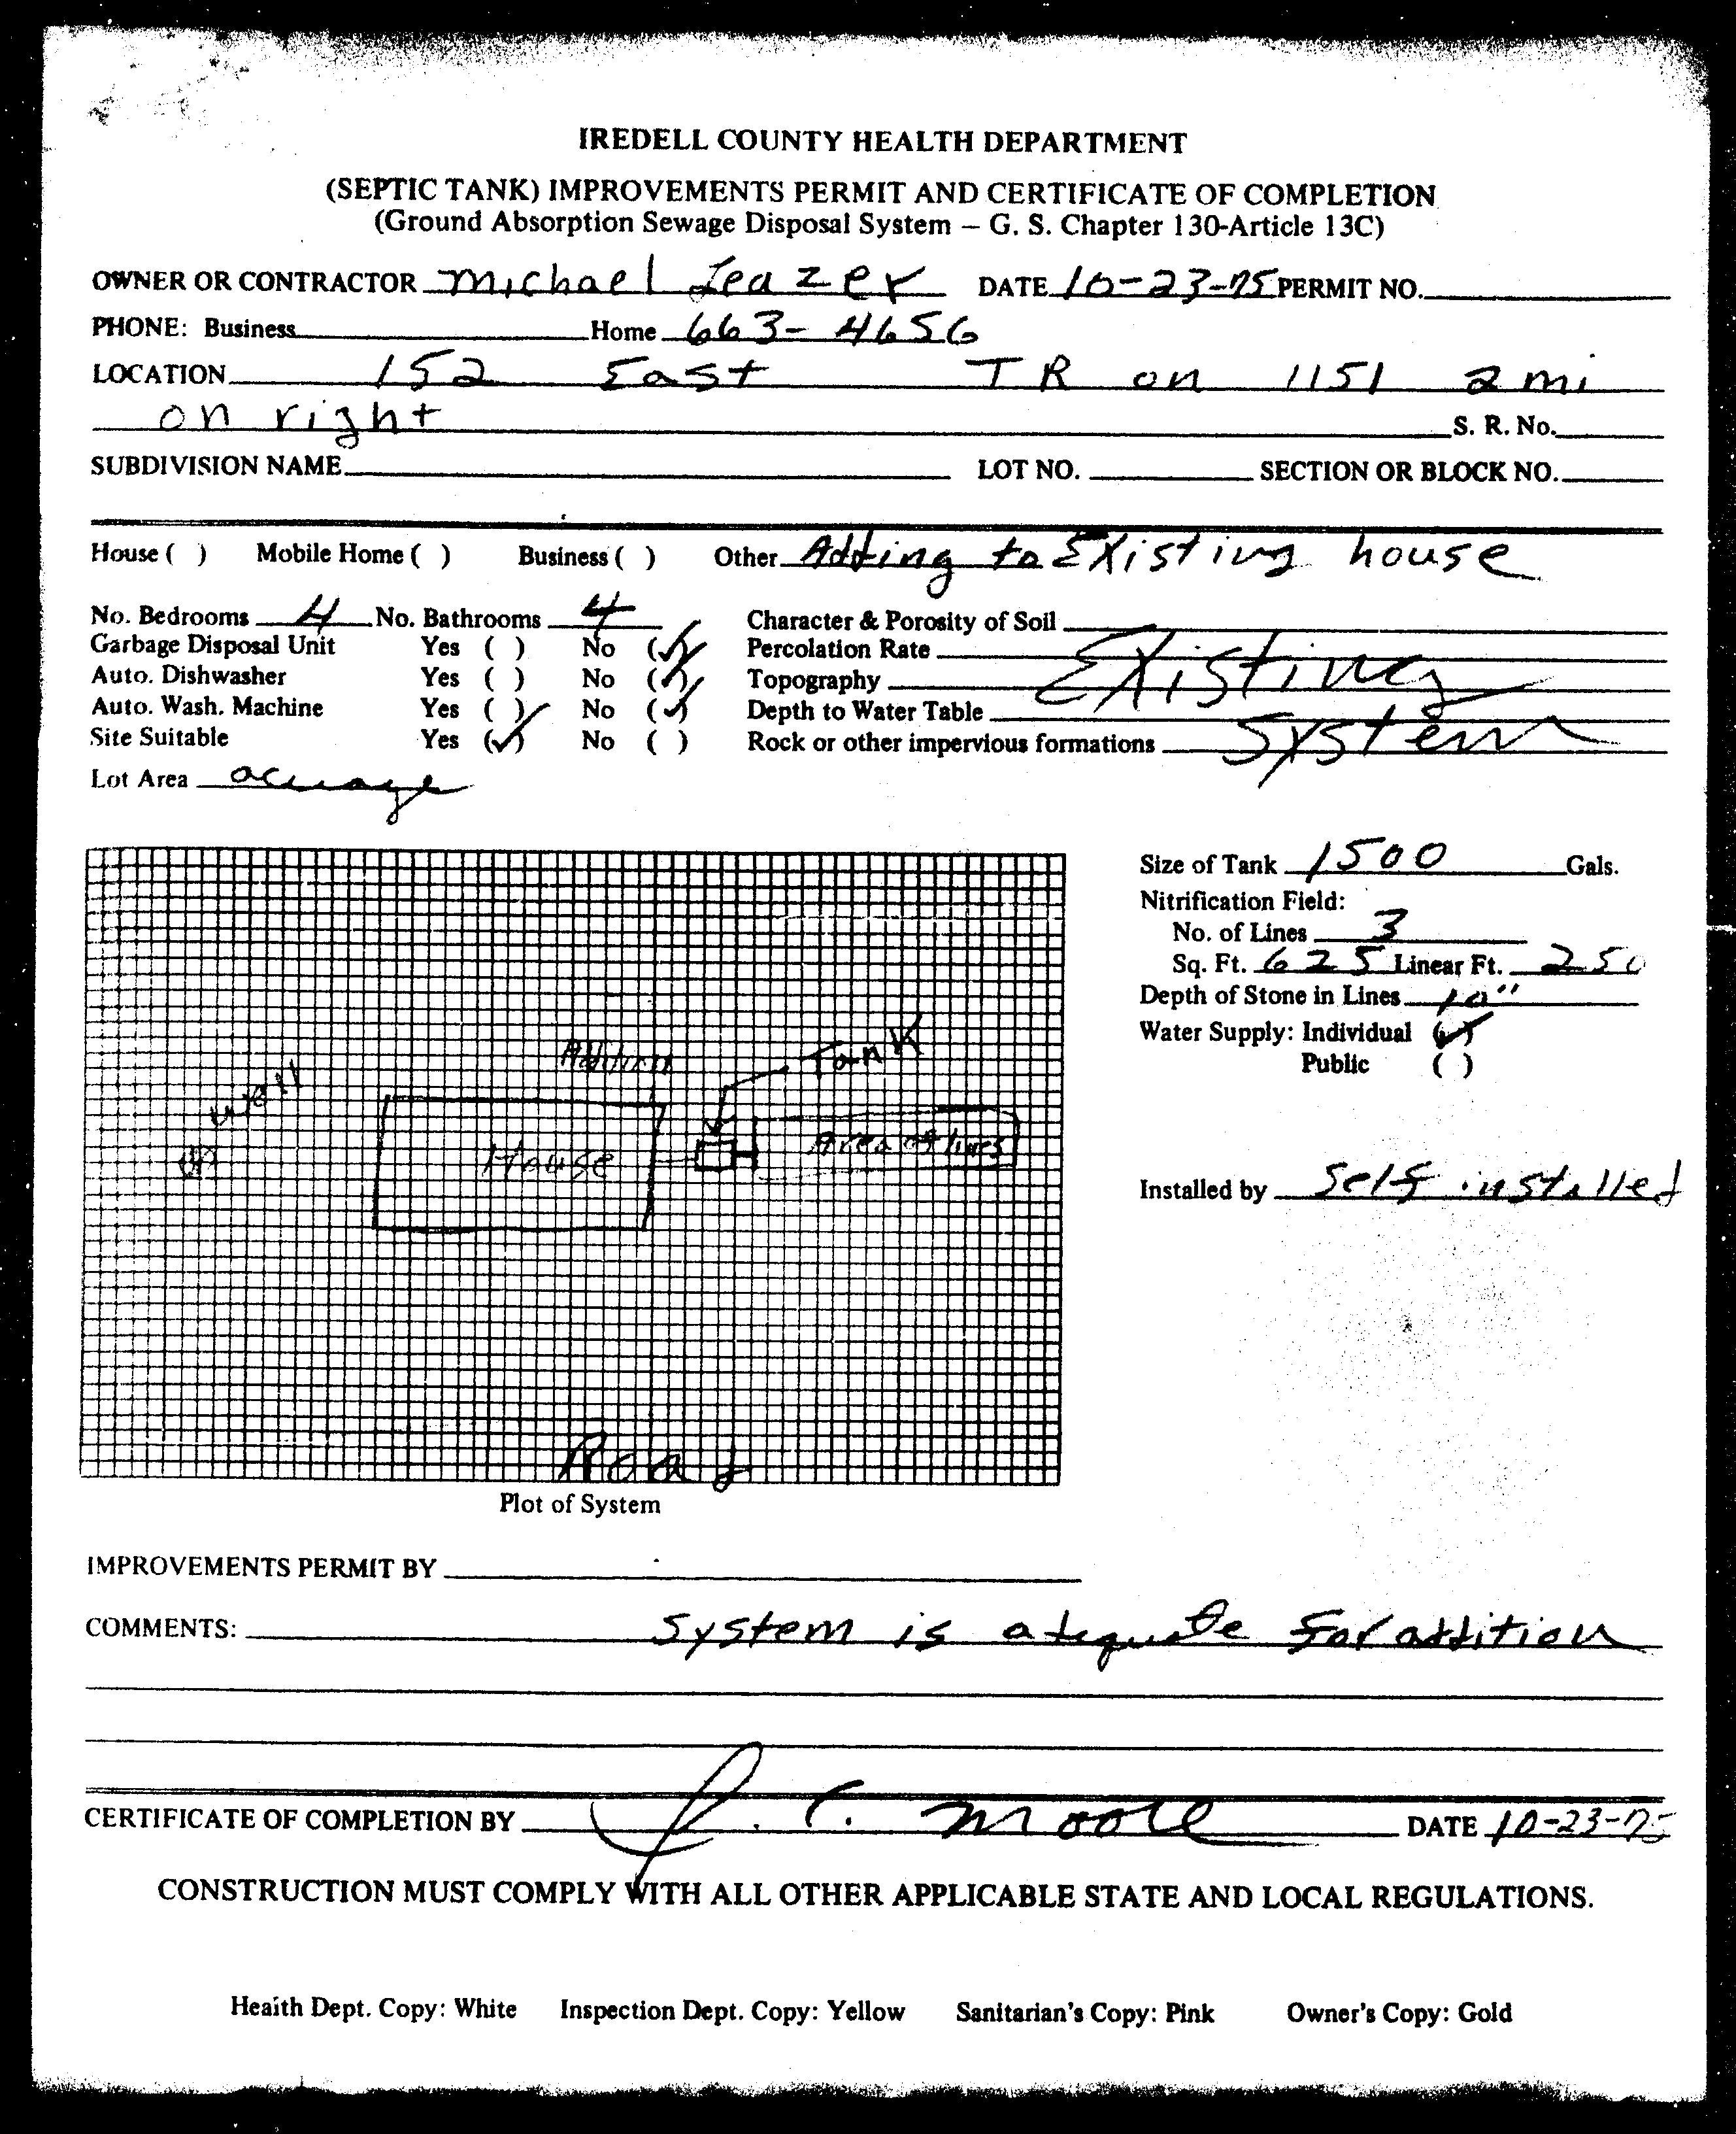 IREDELL COUNTY HEALTH DEPARTMENT
(SEPTIC TANK) IMPROVEMENTS PERMIT AND CERTIFICATE OF COMPLETION
(Ground Absorption Sewage Disposal System – G. S. Chapter 130-Article 13C)
OWNER OR CONTRACTOR Michael Leazer DATE 10-23-75 PERMIT NO.
PHONE: Business Home 663-4656
LOCATION 152 East TR on 1151 2 mi
on right S. R. No.
SUBDIVISION NAME LOT NO. SECTION OR BLOCK NO.
House ( ) Mobile Home ( ) Business ( ) Other Adding to Existing house
No. Bedrooms 4 No. Bathrooms 4 Character & Porosity of Soil
Garbage Disposal Unit Yes ( ) No (✓) Percolation Rate Existing
Auto. Dishwasher Yes ( ) No (✓) Topography
Auto. Wash. Machine Yes ( ) No (✓) Depth to Water Table
Site Suitable Yes (✓) No ( ) Rock or other impervious formations System
Lot Area acreage
Size of Tank 1500 Gals.
Nitrification Field:
No. of Lines 3
Sq. Ft. 625 Linear Ft. 250
Depth of Stone in Lines 10"
Water Supply: Individual (✓)
Public ( )
Addition Tank
well
House Area of lines
Installed by Self installed
Road
Plot of System
IMPROVEMENTS PERMIT BY
COMMENTS: System is adequate for addition
CERTIFICATE OF COMPLETION BY J. C. Moore DATE 10-23-75
CONSTRUCTION MUST COMPLY WITH ALL OTHER APPLICABLE STATE AND LOCAL REGULATIONS.
Health Dept. Copy: White Inspection Dept. Copy: Yellow Sanitarian's Copy: Pink Owner's Copy: Gold